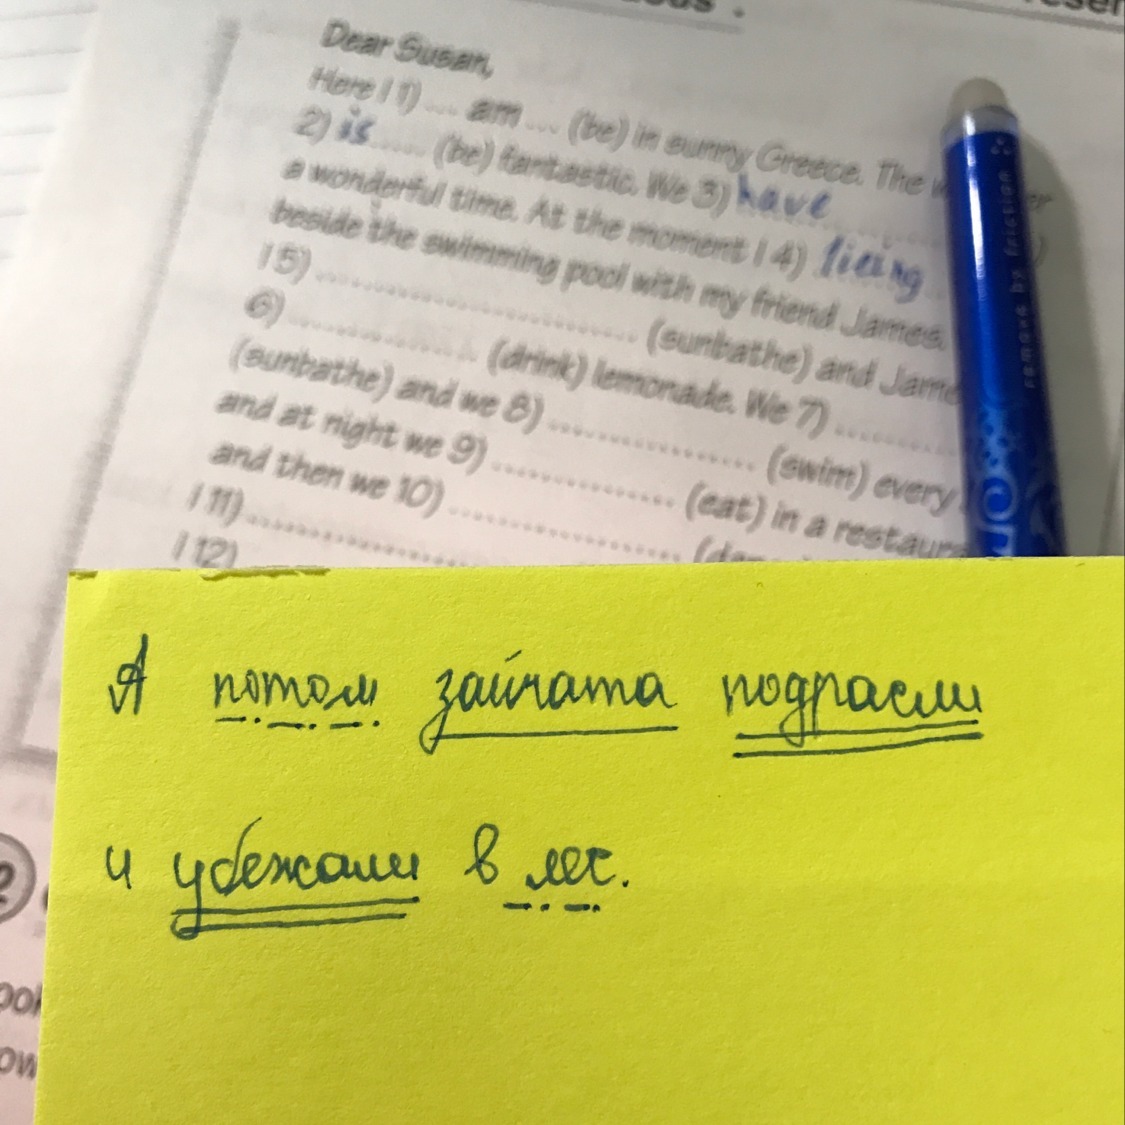 Dear Susan,
Here I 1) .... am .... (be) in sunny Greece. The
2) is ...... (be) fantastic. We 3) have
a wonderful time. At the moment I 4) lieing
beside the swimming pool with my friend James.
I 5) .............................. (sunbathe) and
6) .................... (drink) lemonade. We 7) ............
(sunbathe) and we 8) .................... (swim) every
and at night we 9) .................... (eat) in a
and then we 10) ....................
I 11) ....................
I 12)
remove by friction
А потом зайчата подрасли
и убежали в лес.